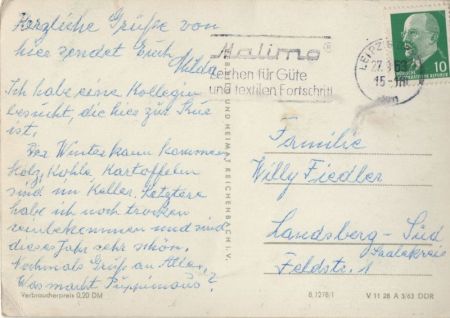 Herzliche Grüße von
hier sendet Euch
Hilda
Ich habe eine Kollegin
besucht, die hier zur Kur
ist.
Der Winter kann kommen
Holz, Kohle, Kartoffeln
sind im Keller. Letztere
habe ich noch trocken
reinbekommen und sind
dieses Jahr sehr schön.
Nochmals Grüße an Alle.
Was macht
Verbraucherpreis 0,20 DM
Malimo
Zeichen für Güte
und textilen Fortschritt
LEIPZIG
15
10
BILD UND HEIMAT REICHENBACH I. V.
Familie
Willy Fiedler
Landsberg-Süd
Saalkreis
Feldstr. 1
B 1278/1
V 11 28 A 3/63 DDR